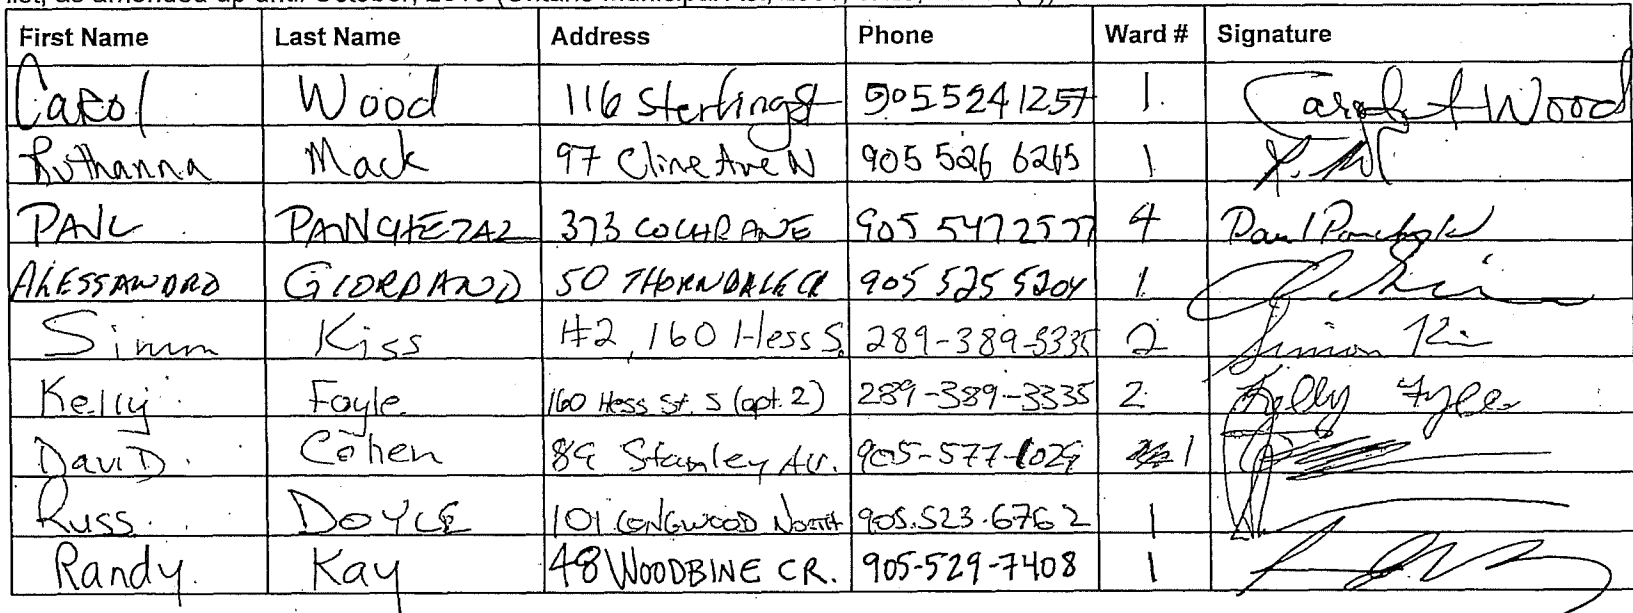 First Name Last Name Address Phone Ward # Signature
Carol Wood 116 Sterling St 905 524 1257 1. Carol Wood
Ruthanna Mack 97 Cline Ave N 905 526 6265 1
PAUL 373 COCHRANE 905 547 2577 4 Paul
ALESSANDRO GIORDANO 50 THORNDALE CR 905 525 5204 1
Simon Kiss #2, 160 Hess S. 289-389-3335 2 Simon Kiss
Kelly Foyle 160 Hess St. S (apt. 2) 289-389-3335 2 Kelly
DaviD Cohen 89 Stanley Av. 905-577-1029 1
Russ DOYLE 101 LONGWOOD NORTH 905.523.6762 1
Randy Kay 48 WOODBINE CR. 905-529-7408 1